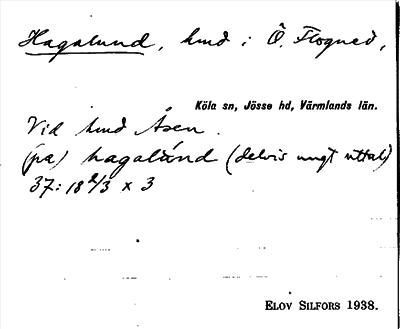 Hagalund, hmd i Ö. Flogned,
Köla sn, Jösse hd, Värmlands län.
Vid hmd Åsen.
(pa) hagalúnd (delvis ungt uttal)
37: 18 2/3 x 3
ELOV SILFORS 1938.